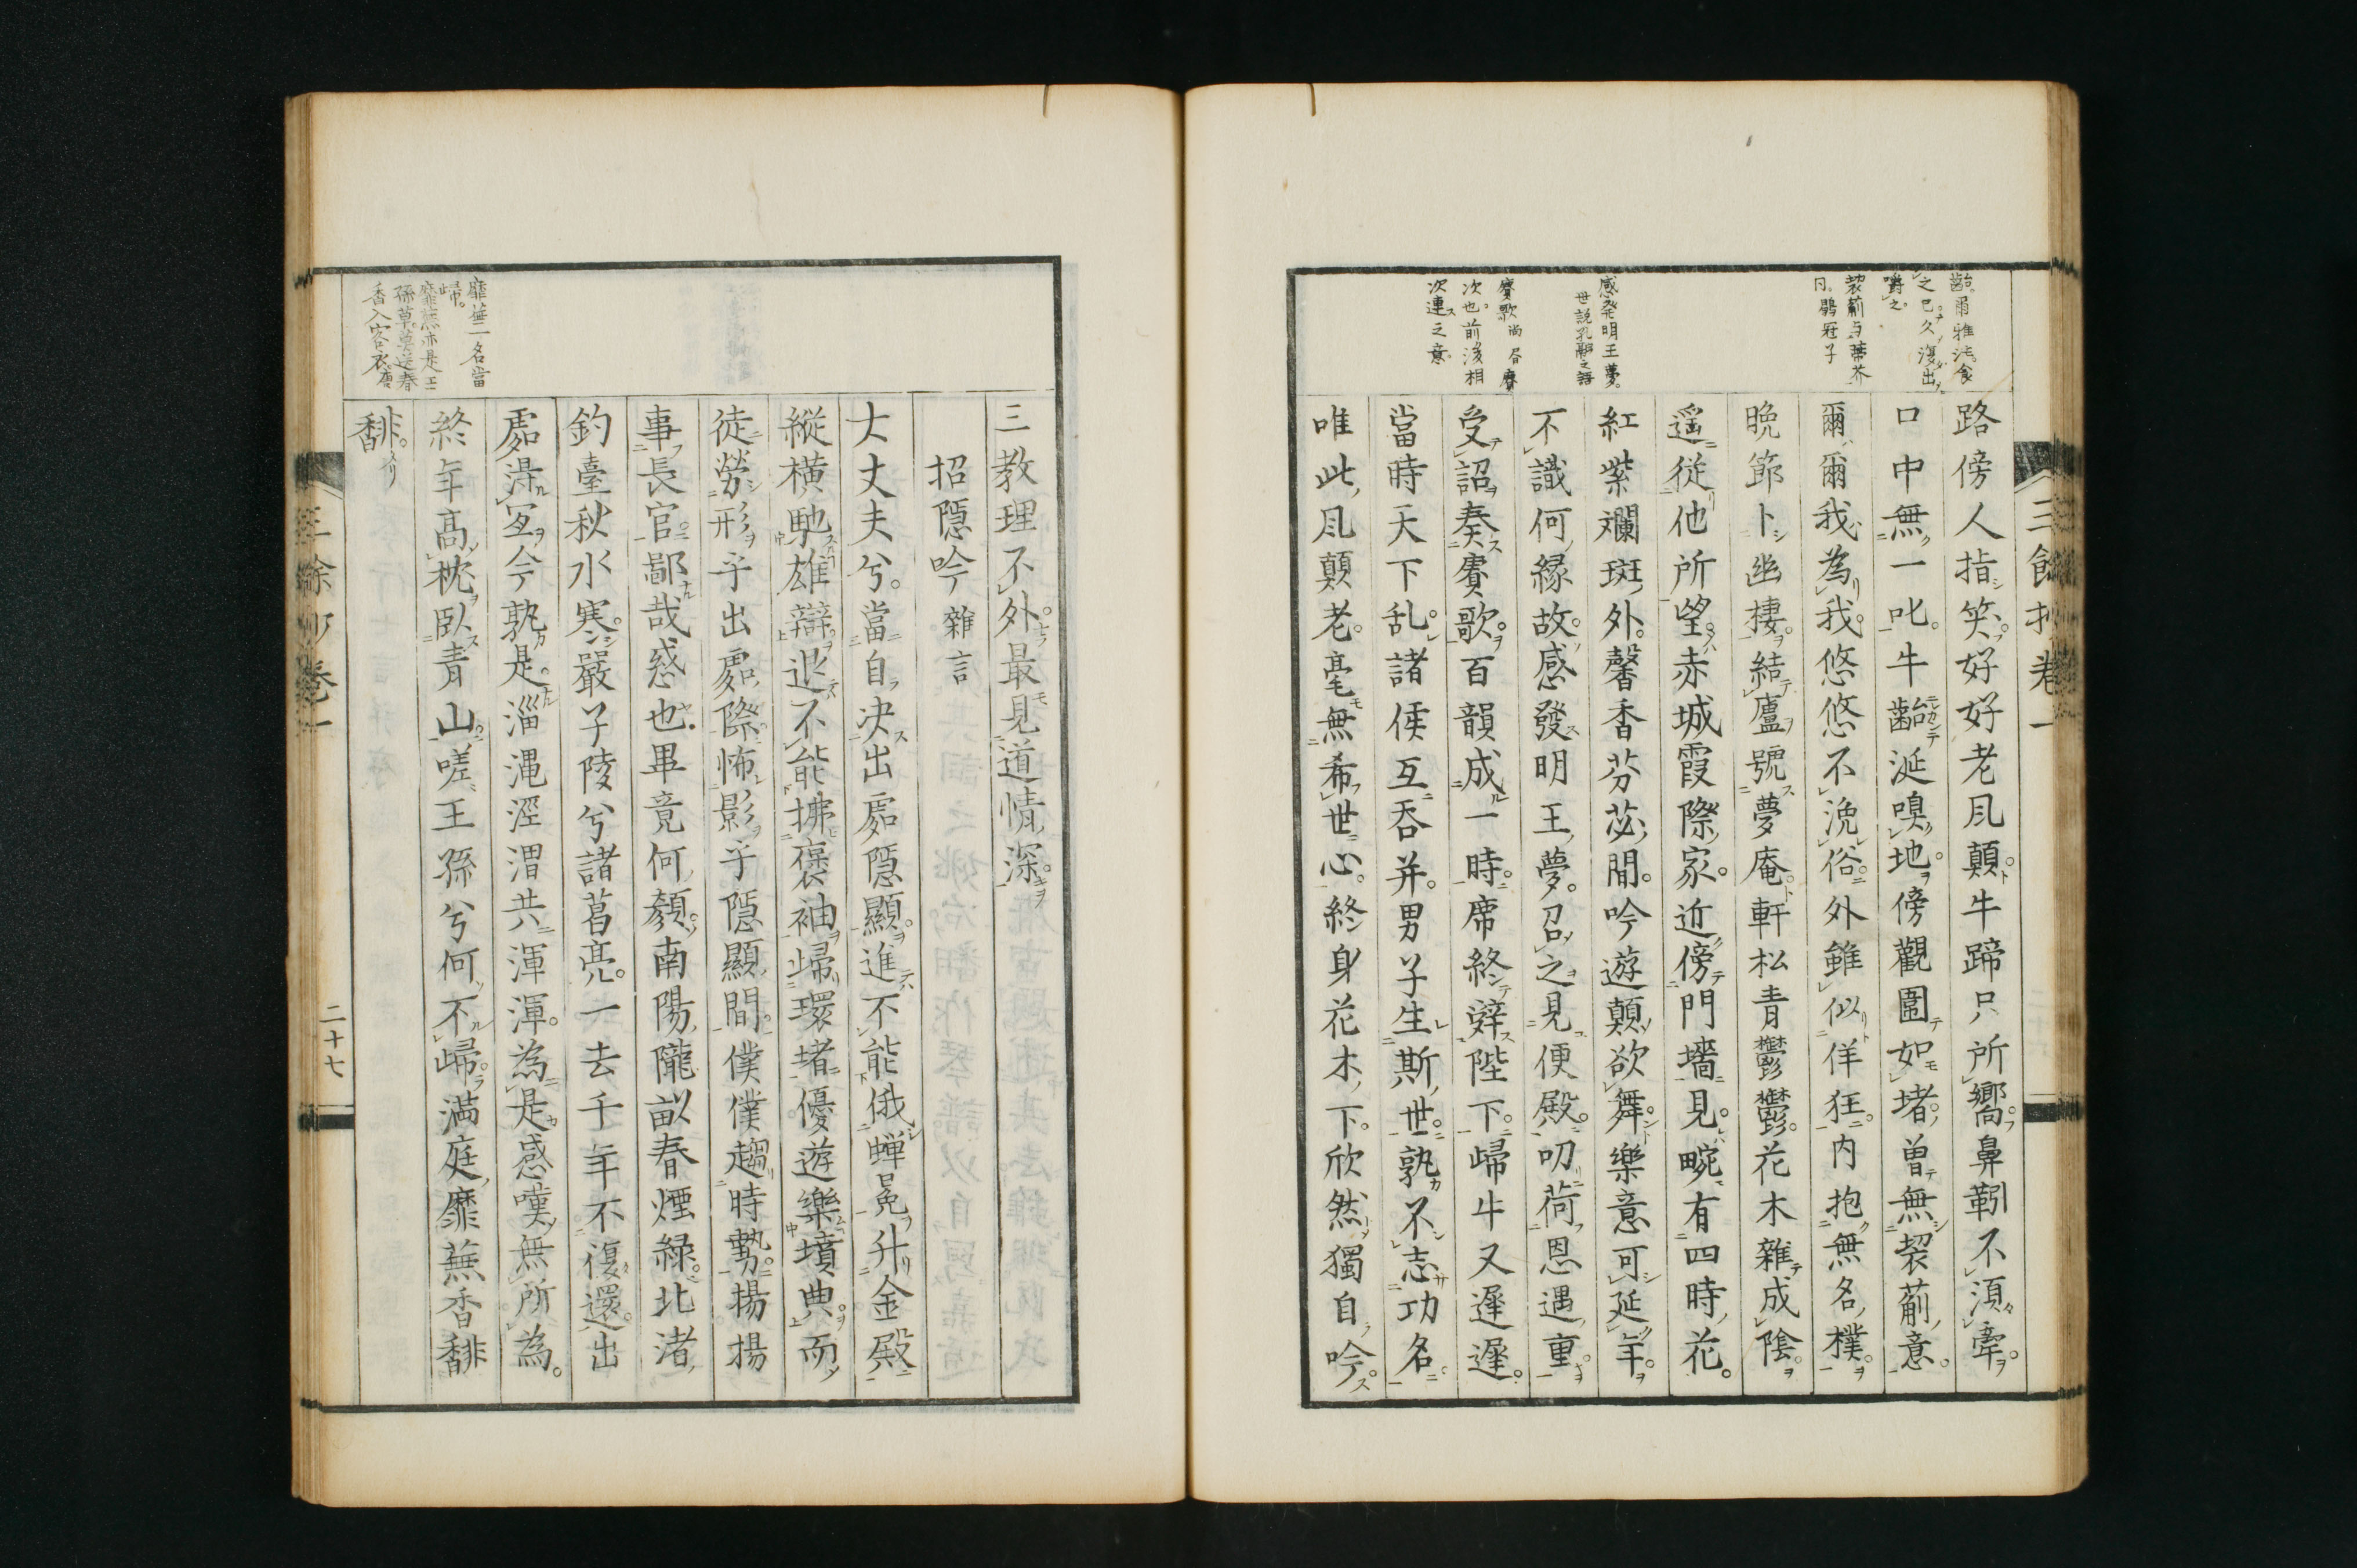 三餘抄卷一
齝爾雅注食
之已久復出
嚼之
䓶葪与蔕芥
同鶡冠子
感発明王夢
世説孔融之語
賡歌尚書賡
次也前後相
次連之意
路傍人指笑好好老風顛牛蹄只所嚮鼻靷不須牽
口中無一叱牛齝涎嗅地傍觀圍如堵曽無葪意
爾爾我為我悠悠不浼俗外雖似佯狂内抱無名樸
晩節卜幽棲結廬號夢庵軒松青鬱鬱花木雜成陰
遥従他所望赤城霞際家近傍門墻見畹有四時花
紅紫斕斑外馨香芬苾間吟遊顛欲舞樂意可延年
不識何縁故感發明王夢召之見便殿叨荷恩遇重
受詔奏賡歌百韻成一時席終辞陛下歸牛又遲遲
當時天下乱諸侯互吞并男子生斯世孰不志功名
唯此風顛老毫無希世心終身花木下欣然獨自吟
蘼蕪二名當
歸
蘼蕪亦是王
孫草莫送春
香入客衣唐
三教理不外最見道情深
招隠吟 雜言
大丈夫兮當自决出處隠顯進不能俄蝉冕升金殿
縦横馳雄辯退不能拂褒袖歸環堵優遊樂墳典而
徒勞形乎出處際怖影乎隠顯間僕僕趨時勢揚揚
事長官鄙哉惑也畢竟何顏南陽隴畝春煙緑北渚
釣臺秋水寒嚴子陵兮諸葛亮一去千年不復還出
處淂冝今孰是淄渑涇渭共渾渾為是感嘆無所為
終年高枕臥青山嗟王孫兮何不歸満庭蘼蕪香馡
馡
三餘抄卷一
二十七